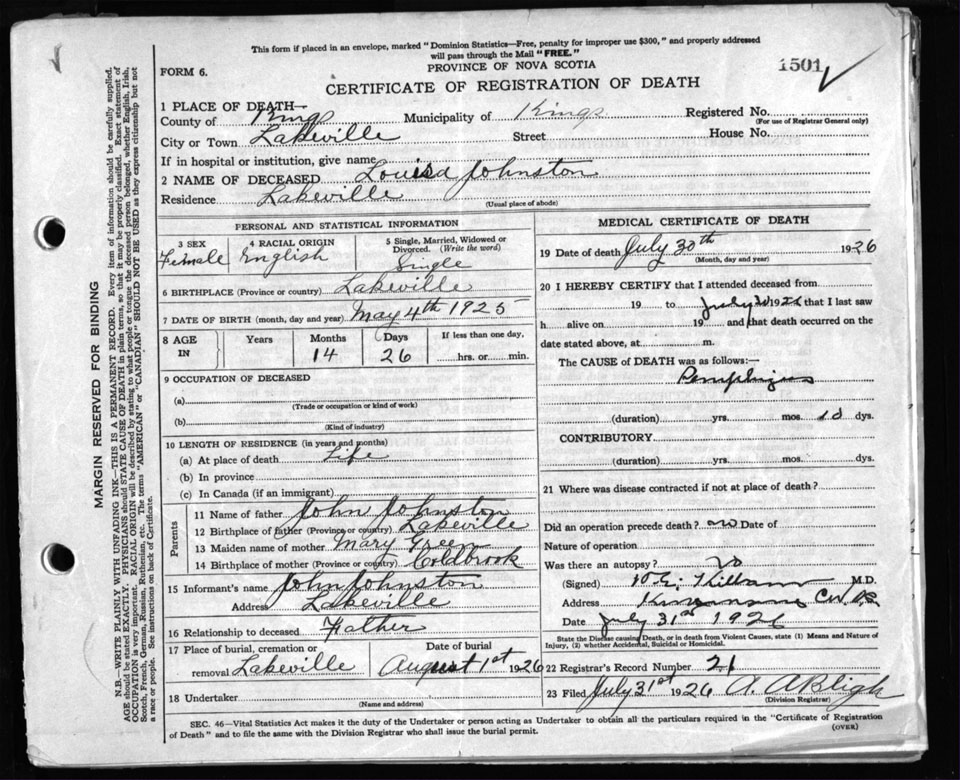 This form if placed in an envelope, marked "Dominion Statistics—Free, penalty for improper use $300," and properly addressed
will pass through the Mail "FREE."
PROVINCE OF NOVA SCOTIA
1501
FORM 6.
CERTIFICATE OF REGISTRATION OF DEATH
MARGIN RESERVED FOR BINDING
N.B.—WRITE PLAINLY WITH UNFADING INK—THIS IS A PERMANENT RECORD. Every item of information should be carefully supplied.
AGE should be stated EXACTLY. PHYSICIANS should STATE CAUSE OF DEATH in plain terms, so that it may be properly classified. Exact statement of
OCCUPATION is very important. RACIAL ORIGIN will be described by stating to what people or tongue the deceased person belonged, whether English, Irish,
Scotch, French, German, Russian, Ruthenian, etc. The terms "AMERICAN" or "CANADIAN" SHOULD NOT BE USED as they express citizenship but not
a race or people. See instructions on back of Certificate.
1 PLACE OF DEATH—
County of Kings Municipality of Kings Registered No.
(For use of Registrar General only)
City or Town Lakeville Street House No.
If in hospital or institution, give name
2 NAME OF DECEASED Louisa Johnston
Residence Lakeville
(Usual place of abode)
PERSONAL AND STATISTICAL INFORMATION
3 SEX
Female
4 RACIAL ORIGIN
English
5 Single, Married, Widowed or
Divorced. (Write the word)
Single
6 BIRTHPLACE (Province or country) Lakeville
7 DATE OF BIRTH (month, day and year) May 4th 1925
8 AGE
IN
Years Months Days If less than one day,
14 26 hrs. or min.
9 OCCUPATION OF DECEASED
(a)
(Trade or occupation or kind of work)
(b)
(Kind of industry)
10 LENGTH OF RESIDENCE (in years and months)
(a) At place of death Life
(b) In province
(c) In Canada (if an immigrant)
Parents
11 Name of father John Johnston
12 Birthplace of father (Province or country) Lakeville
13 Maiden name of mother Mary Green
14 Birthplace of mother (Province or country) Coldbrook
15 Informant's name John Johnston
Address Lakeville
16 Relationship to deceased Father
17 Place of burial, cremation or
removal Lakeville
Date of burial
August 1st 1926
18 Undertaker
(Name and address)
MEDICAL CERTIFICATE OF DEATH
19 Date of death July 30th 1926
(Month, day and year)
20 I HEREBY CERTIFY that I attended deceased from
19 to July 30 1926 that I last saw
h alive on 19 and that death occurred on the
date stated above, at m.
The CAUSE of DEATH was as follows:—
Pemphigus
(duration) yrs. mos. 10 dys.
CONTRIBUTORY
(duration) yrs. mos. dys.
21 Where was disease contracted if not at place of death?
Did an operation precede death? no Date of
Nature of operation
Was there an autopsy? no
(Signed) M.D.
Address
Date July 31st 1926
State the Disease causing Death, or in death from Violent Causes, state (1) Means and Nature of
Injury, (2) whether Accidental, Suicidal or Homicidal.
22 Registrar's Record Number 21
23 Filed July 31st 1926 A. A. Bligh
(Division Registrar)
SEC. 46—Vital Statistics Act makes it the duty of the Undertaker or person acting as Undertaker to obtain all the particulars required in the "Certificate of Registration
of Death" and to file the same with the Division Registrar who shall issue the burial permit.
(OVER)